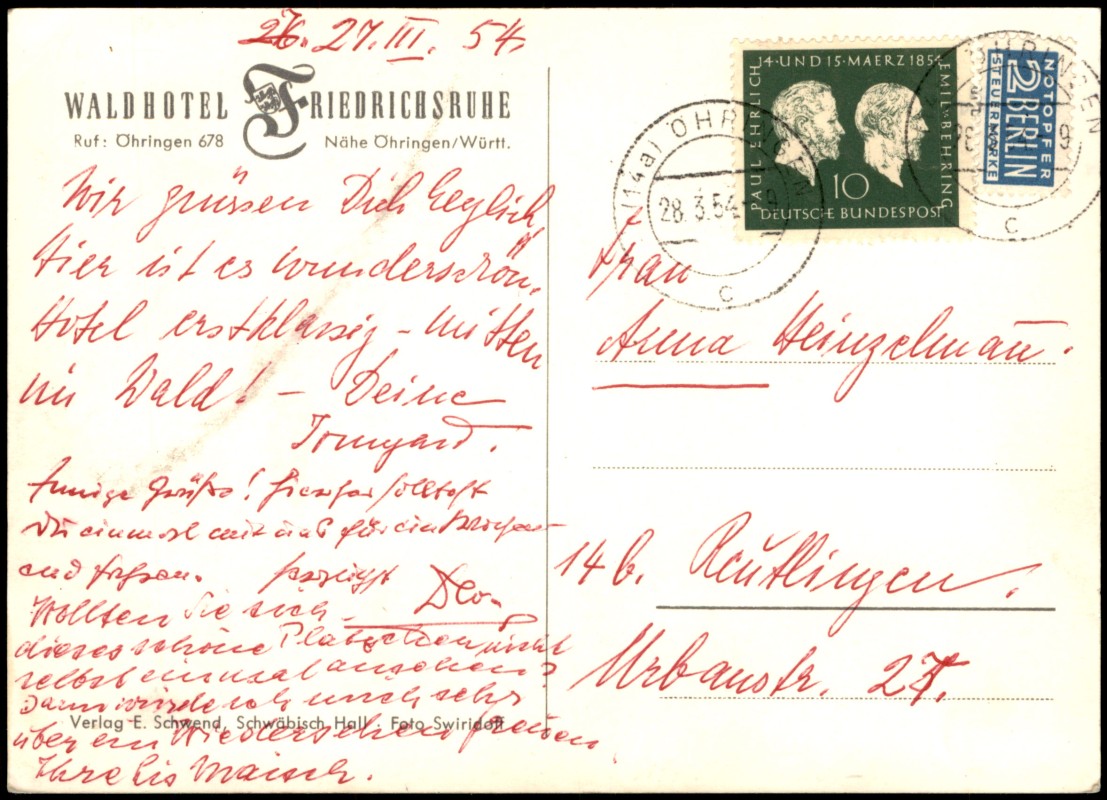 27. III. 54.
WALDHOTEL FRIEDRICHSRUHE
Ruf: Öhringen 678 Nähe Öhringen/Württ.
Wir grüssen Dich herzlich,
Hier ist es wunderschön,
Hotel erstklassig – mitten
im Wald! – Deine
Irmgard.
Innige Grüße! Hierher solltest
Du einmal mit uns für ein Wochen-
end fahren. Herzlichst
Wollten Sie sich
dieses schöne Plätzchen nicht
selbst einmal ansehen?
Dann würde ich mich sehr
über ein Wiedersehen freuen
Ihre Lis Maisch.
Verlag E. Schwend, Schwäbisch Hall · Foto Swiridoff
14·UND 15·MAERZ 1854
PAUL EHRLICH
EMIL v. BEHRING
10
DEUTSCHE BUNDESPOST
NOTOPFER
2 BERLIN
STEUERMARKE
(14a) ÖHRINGEN
28.3.54.-9
c
ÖHRINGEN
c
Frau
Anna Heinzelmann.
14b. Reutlingen.
Urbanstr. 27.